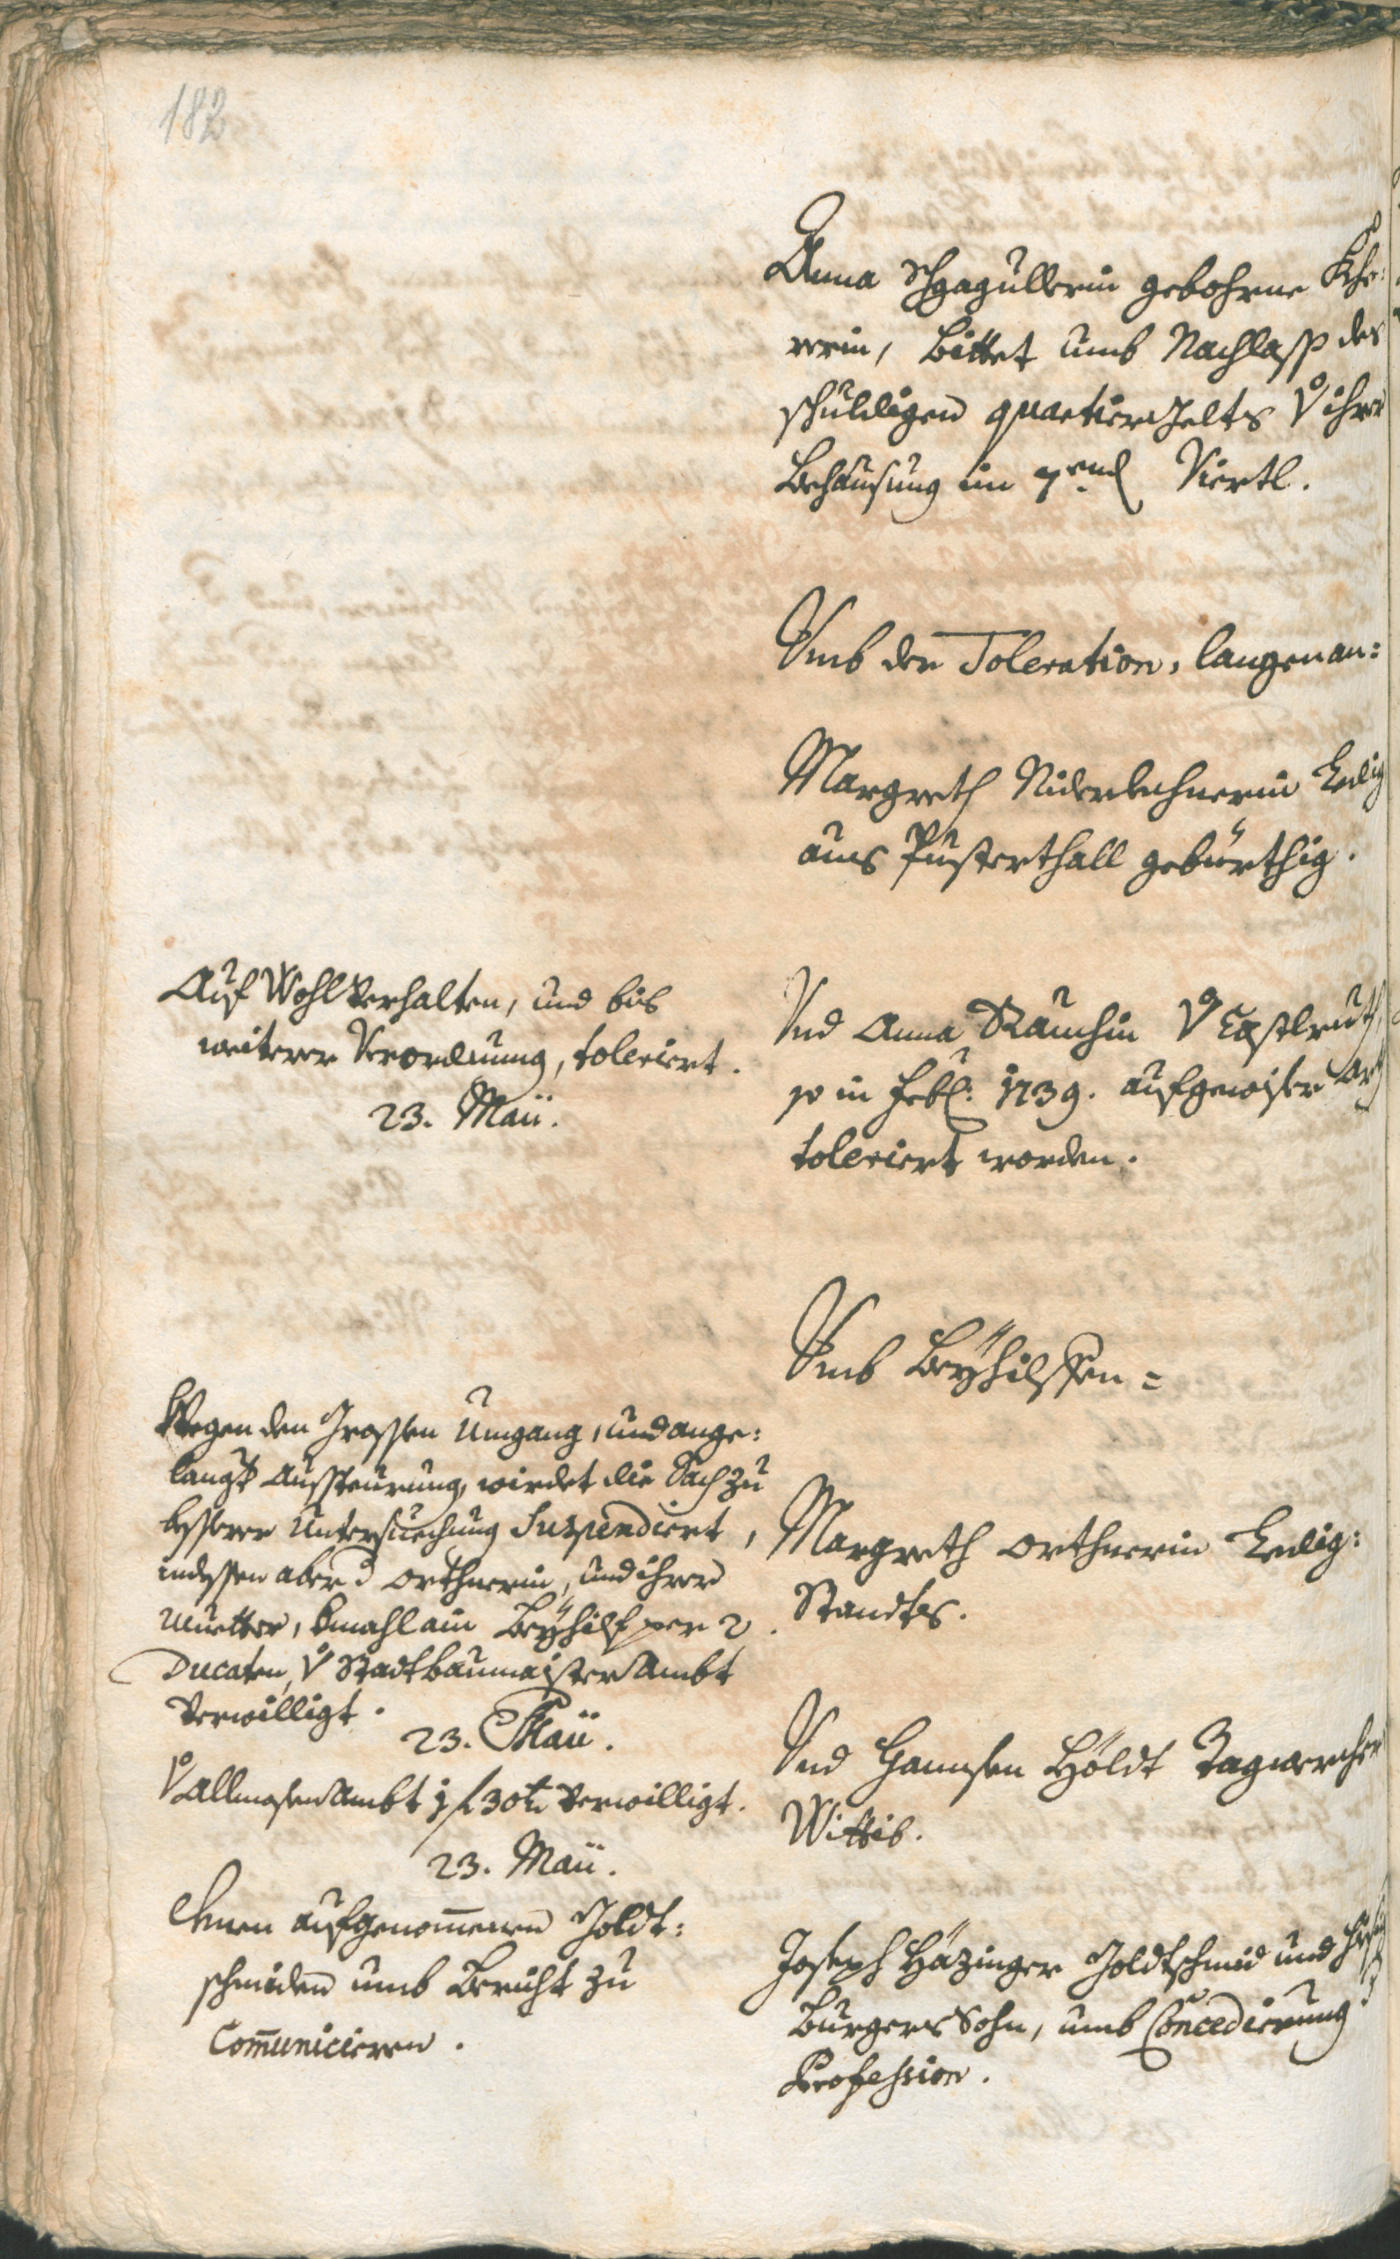 182
Anna Schgagullerin gebohrne Khe-
rerin, bittet umb Nachlaß des
schuldigen quartiergelts v ihrer
Behausung im 7.end Viertl.
Umb der Toleration, langen an:
Margreth Niderlechnerin Ledig
aus Pusterthall gebürthig.
Auf Wohlverhalten, und bis
weiterer Verordnung, toleriert.
23. Maii.
Und Anna Rauchin v Castelruth,
so in Febr: 1739. auf gewisse Arth
toleriert worden.
Umb Beyhilffen =
Wegen den grossen Umgang, und ange:
langte Aussteurung, wirdet die Sach zu
besserer Untersuechung Suspendiert,
indessen aber d Orthnerin, und ihrer
Muetter, Emahl ain Beyhilf per 2
Ducaten, v Stadtbaumaister Ambt
verwilligt.
23. Maii.
Margreth Orthnerin Ledig:
Standts.
v Allmosen Ambt 1 f 30 k verwilligt.
23. Maii.
Und Hannsen Höldt Tagwercher
Wittib.
Denen aufgenommenen Goldt:
schmiden umb Bericht zu
Communicieren.
Joseph Häzinger Goldtschmid und
Burgers Sohn, umb Concedierung
Profession.